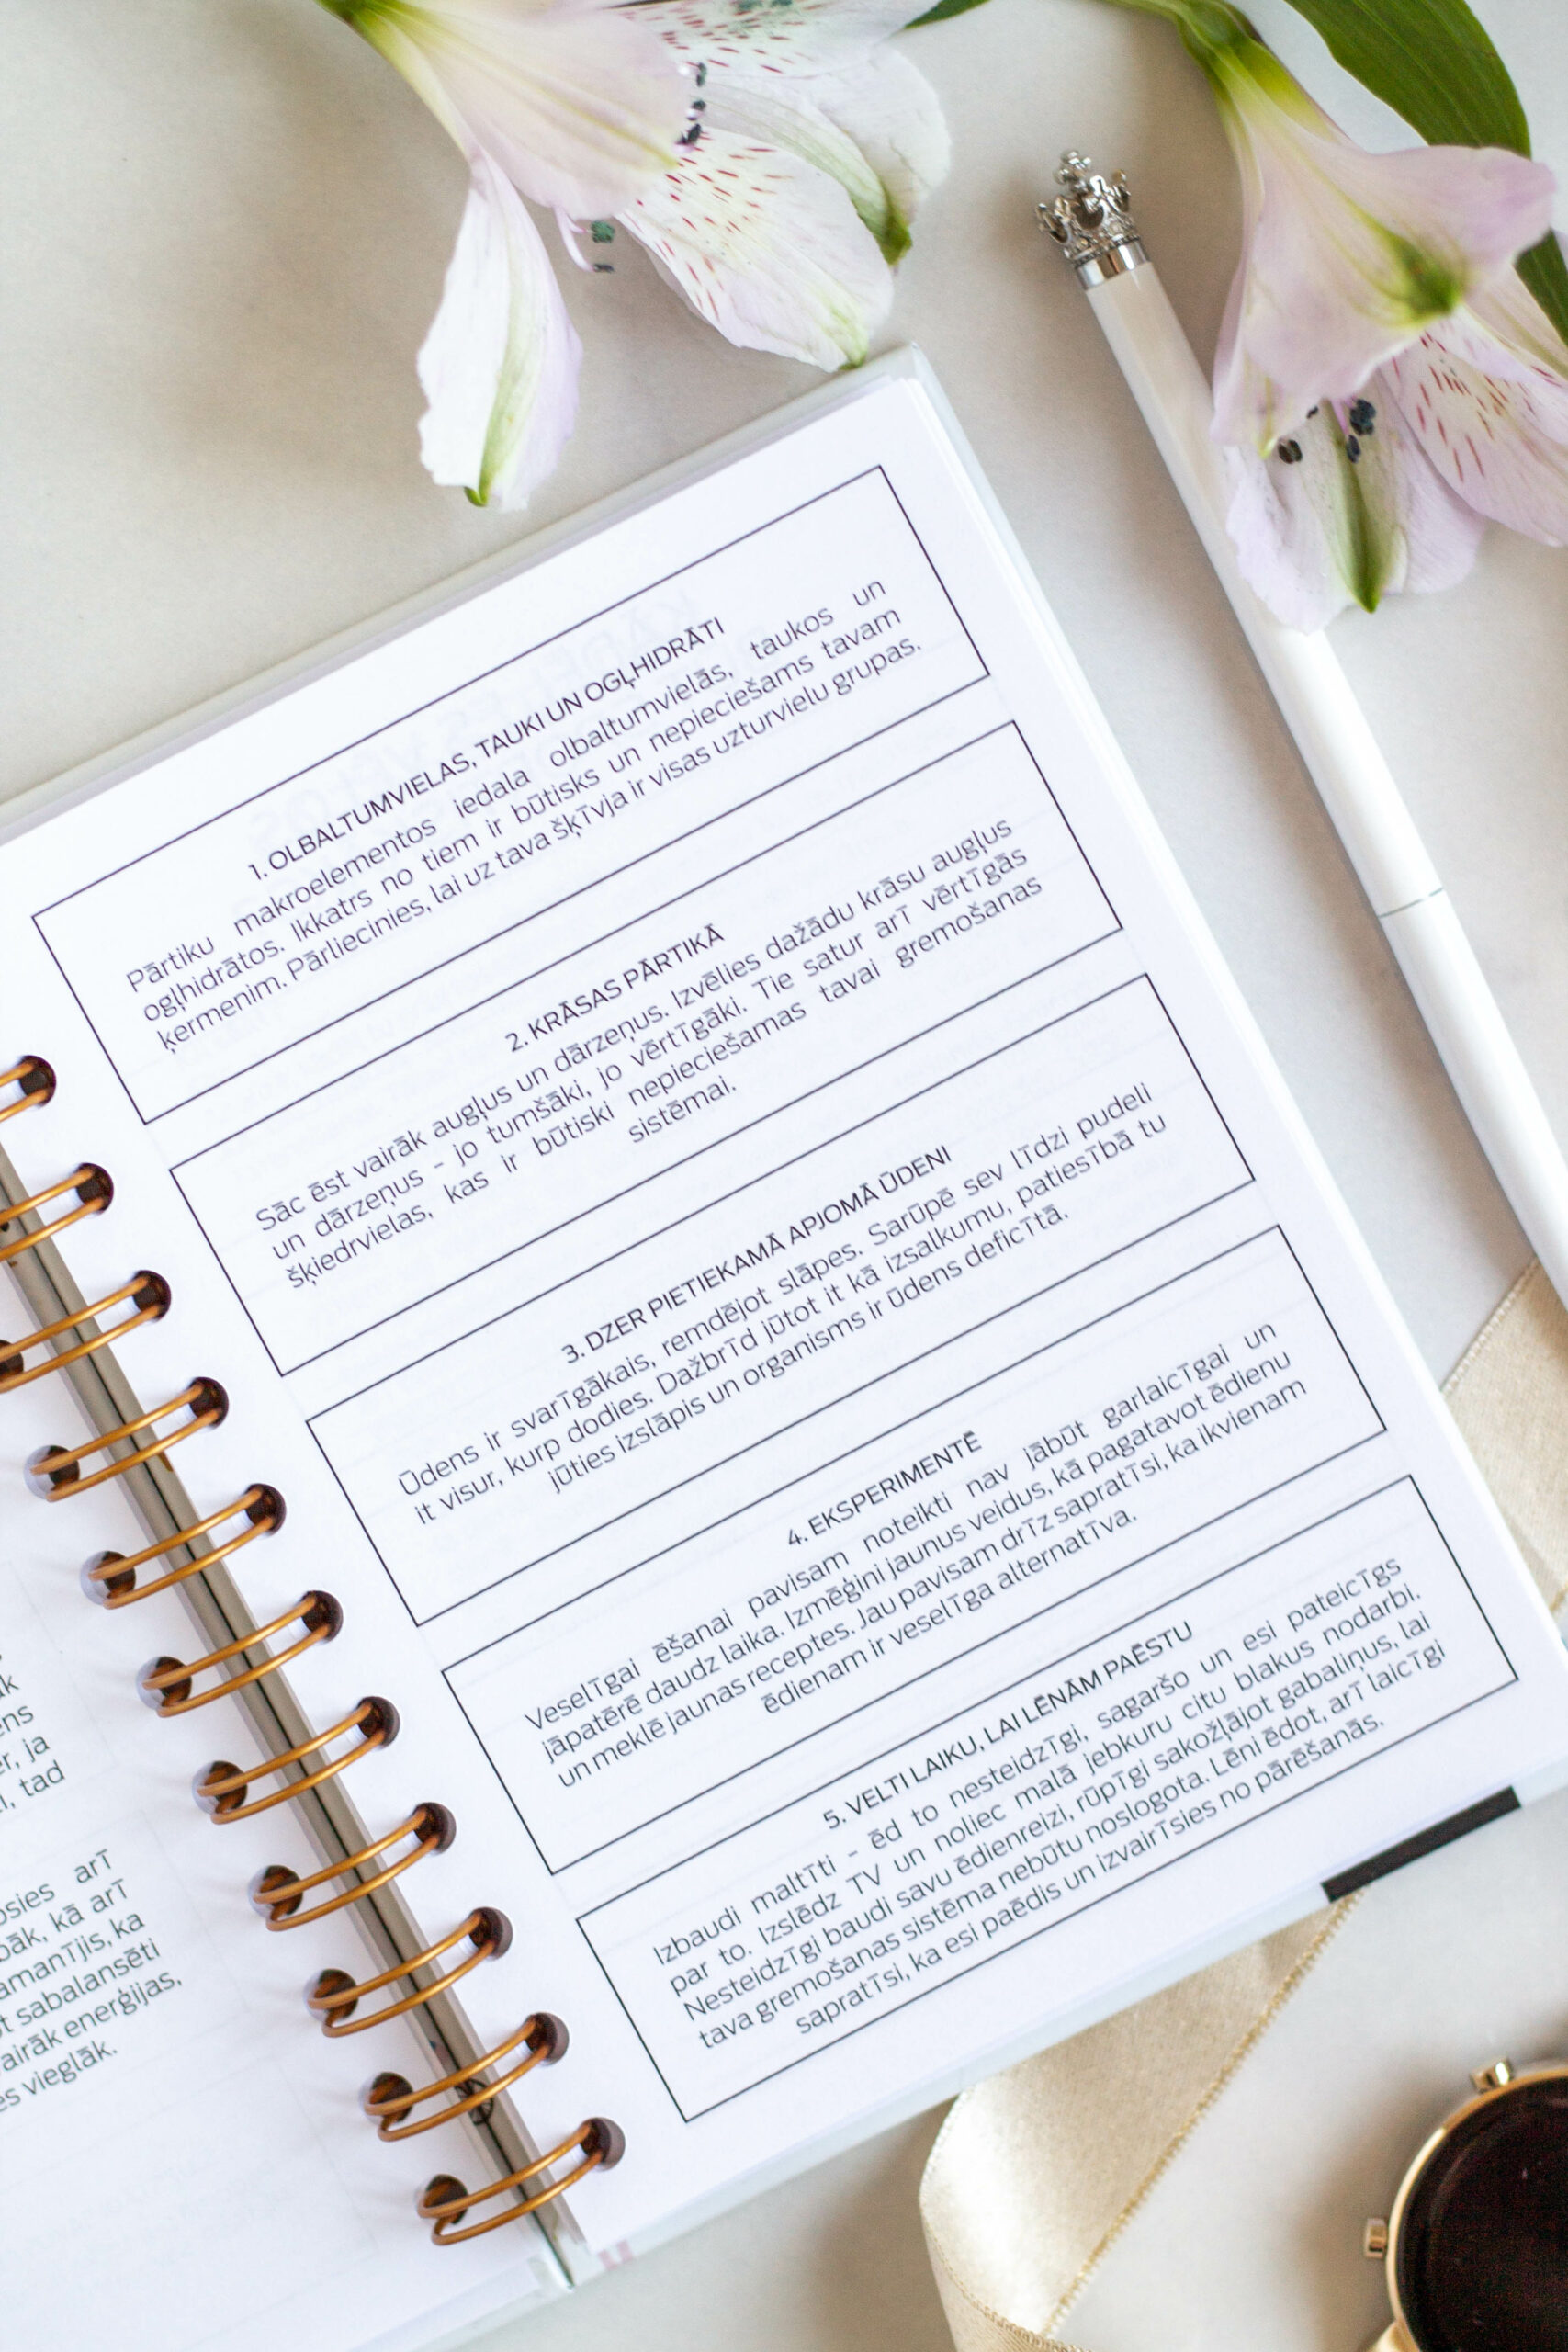 1. OLBALTUMVIELAS, TAUKI UN OGĻHIDRĀTI
Pārtiku makroelementos iedala olbaltumvielās, taukos un
ogļhidrātos. Ikkatrs no tiem ir būtisks un nepieciešams tavam
ķermenim. Pārliecinies, lai uz tava šķīvja ir visas uzturvielu grupas.
2. KRĀSAS PĀRTIKĀ
Sāc ēst vairāk augļus un dārzeņus. Izvēlies dažādu krāsu augļus
un dārzeņus - jo tumšāki, jo vērtīgāki. Tie satur arī vērtīgās
šķiedrvielas, kas ir būtiski nepieciešamas tavai gremošanas
sistēmai.
3. DZER PIETIEKAMĀ APJOMĀ ŪDENI
Ūdens ir svarīgākais, remdējot slāpes. Sarūpē sev līdzi pudeli
it visur, kurp dodies. Dažbrīd jūtot it kā izsalkumu, patiesībā tu
jūties izslāpis un organisms ir ūdens deficītā.
4. EKSPERIMENTĒ
Veselīgai ēšanai pavisam noteikti nav jābūt garlaicīgai un
jāpatērē daudz laika. Izmēģini jaunus veidus, kā pagatavot ēdienu
un meklē jaunas receptes. Jau pavisam drīz sapratīsi, ka ikvienam
ēdienam ir veselīga alternatīva.
5. VELTI LAIKU, LAI LĒNĀM PAĒSTU
Izbaudi maltīti - ēd to nesteidzīgi, sagaršo un esi pateicīgs
par to. Izslēdz TV un noliec malā jebkuru citu blakus nodarbi.
Nesteidzīgi baudi savu ēdienreizi, rūpīgi sakožļājot gabaliņus, lai
tava gremošanas sistēma nebūtu noslogota. Lēni ēdot, arī laicīgi
sapratīsi, ka esi paēdis un izvairīsies no pārēšanās.
ja
tad
arī
kā arī
ka
sabalansēti
enerģijas,
vieglāk.